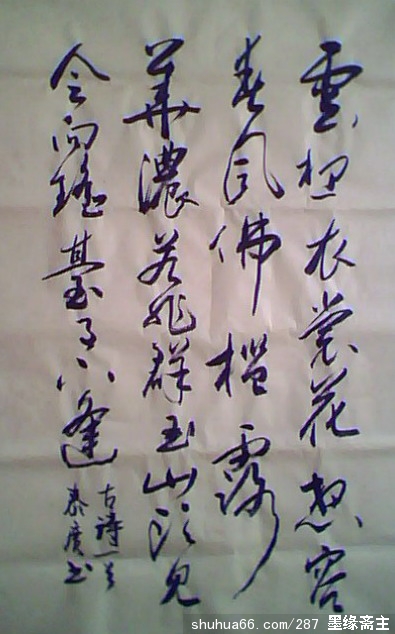 雲想衣裳花想容
春风佛槛露
華濃若非群玉山头见
会向瑶臺月下逢
古诗一首
泰廣书
shuhua66.com/287 墨缘斋主